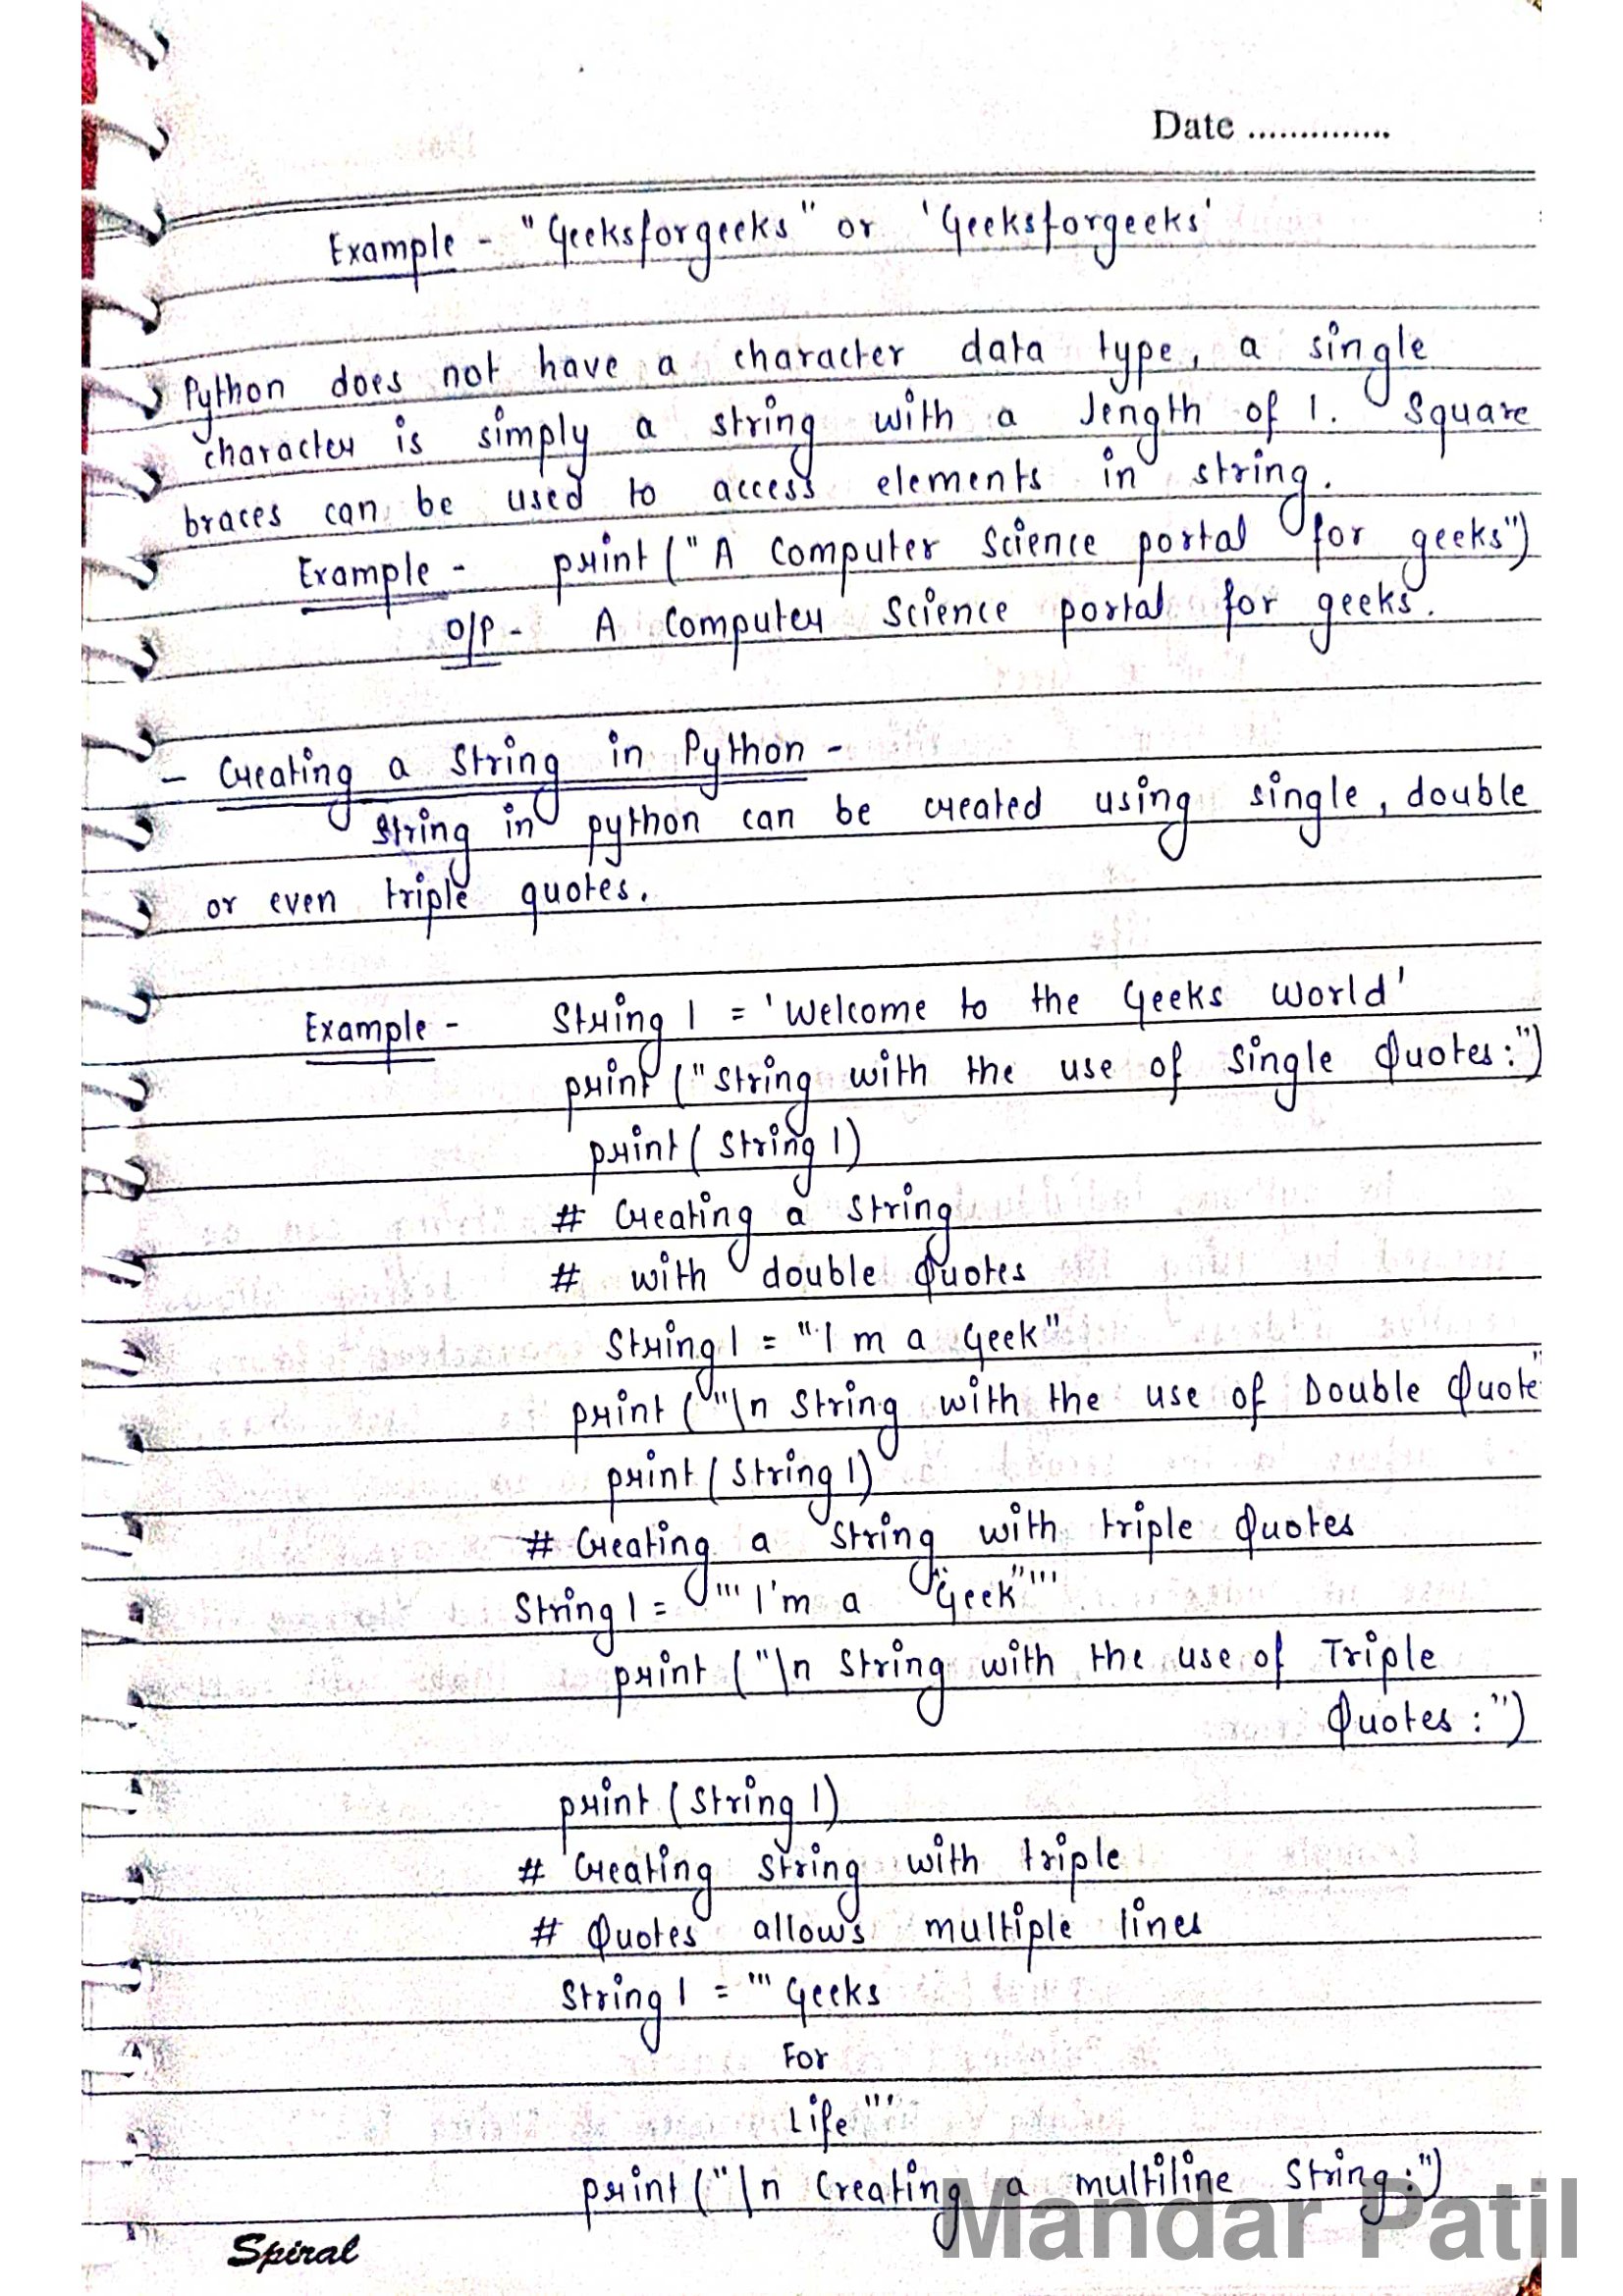 Date ..............
Example - "Geeksforgeeks" or 'Geeksforgeeks'
Python does not have a character data type, a single
character is simply a string with a length of 1. Square
braces can be used to access elements in string.
Example - print ("A Computer Science portal for geeks")
O/P - A Computer Science portal for geeks.
- Creating a String in Python -
String in python can be created using single, double
or even triple quotes.
Example - String 1 = 'Welcome to the Geeks World'
print ("String with the use of Single Quotes:")
print ( String 1)
# Creating a String
# with double Quotes
String 1 = "I m a Geek"
print ("\n String with the use of Double Quote"
print ( String 1)
# Creating a String with triple Quotes
String 1 = '''I'm a "Geek"'''
print ("\n String with the use of Triple
Quotes :")
print ( String 1)
# Creating String with triple
# Quotes allows multiple lines
String 1 = '''Geeks
For
Life'''
print ("\n Creating a multiline String:")
Spiral
Mandar Patil